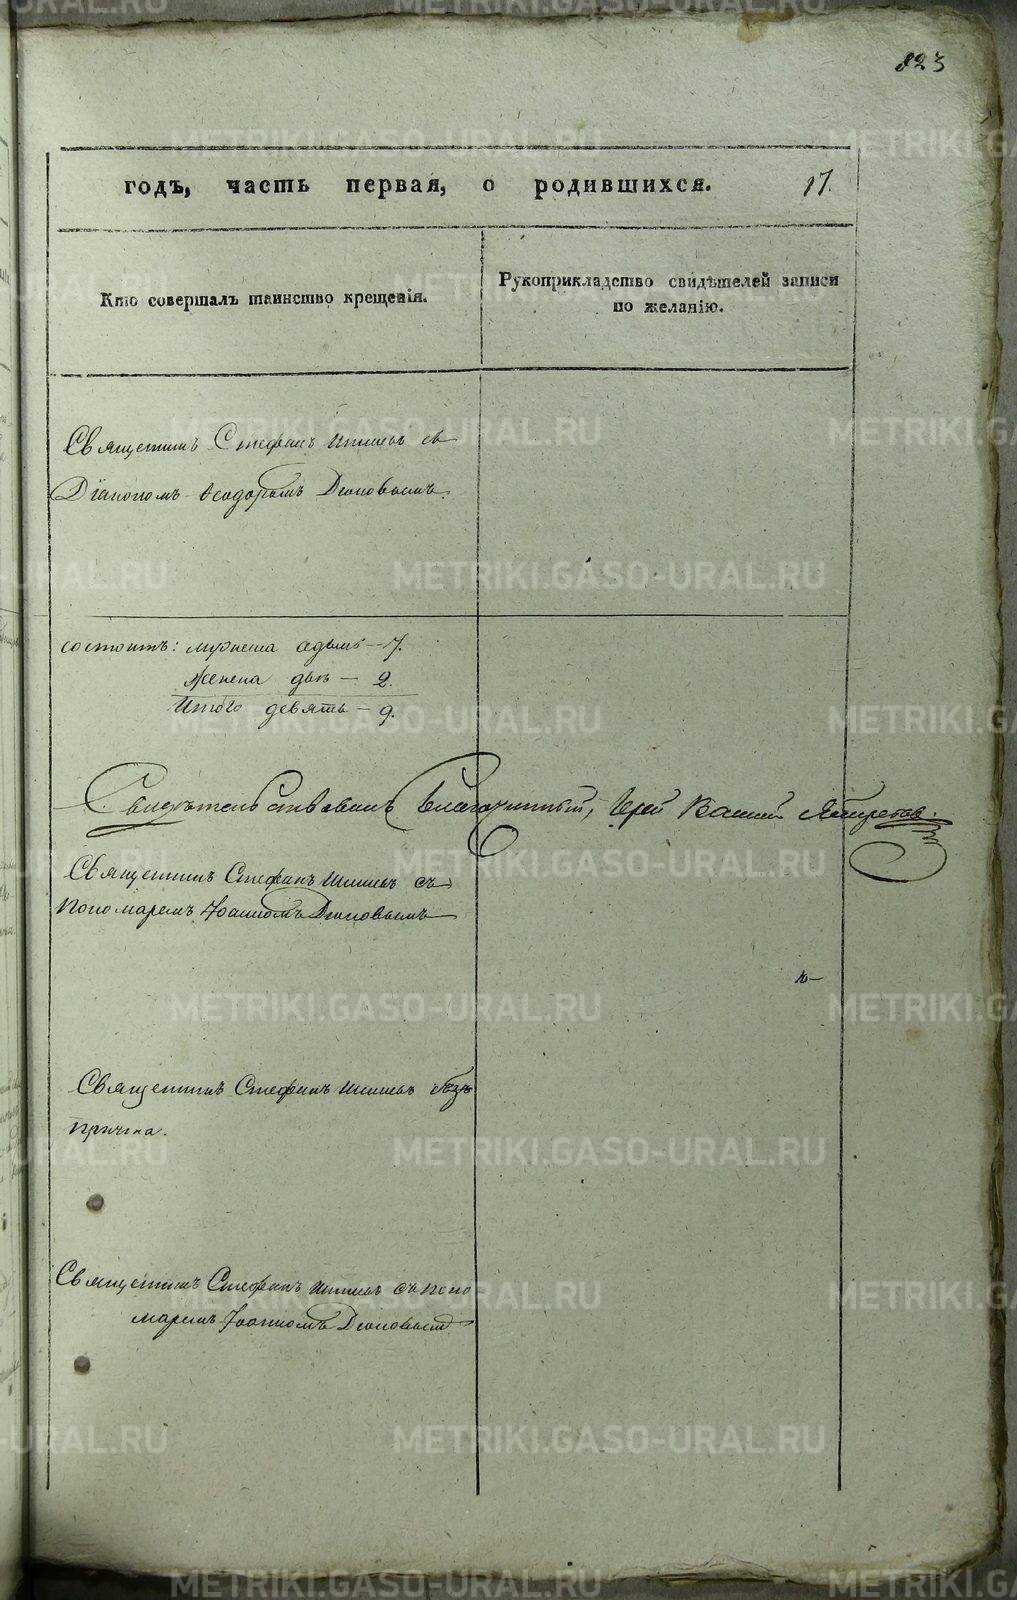 823
годъ, часть первая, о родившихся. 17.
Кто совершалъ таинство крещенія.
Рукоприкладство свидѣтелей записи
по желанію.
Священникъ Стефанъ съ
Діакономъ Ѳеодоромъ Діоновымъ.
состоитъ: мужеска седмь – 7.
Женска двѣ – 2.
Итого девять – 9.
Свидѣтельствовалъ Благочинный, Іерей
Священникъ Стефанъ съ
Пономаремъ Іоанномъ Діоновымъ
Священникъ Стефанъ безъ
причта.
Священникъ Стефанъ съ поно
маремъ Іоанномъ Діоновымъ
METRIKI.GASO-URAL.RU